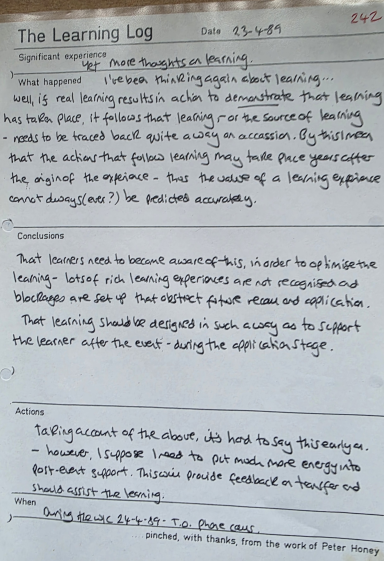 242
The Learning Log Date 23-4-89
Significant experience
Yet more thoughts on learning.
What happened I've been thinking again about learning...
well, if real learning results in action to demonstrate that learning
has taken place, it follows that learning - or the source of learning
- needs to be traced back quite a way on accassion. By this I mean
that the actions that follow learning may take place years after
the origin of the experience - thus the value of a learning experience
cannot always (ever?) be predicted accurately.
Conclusions
That learners need to become aware of this, in order to optimise the
learning - lots of rich learning experiences are not recognised and
blockages are set up that obstruct future recall and application.
That learning should be designed in such a way as to support
the learner after the event - during the application stage.
Actions
Taking account of the above, it's hard to say this early on.
- however, I suppose I need to put much more energy into
post-event support. This will provide feedback on transfer and
should assist the learning.
When
During the w/c 24-4-89 - T.O. phone calls.
....pinched, with thanks, from the work of Peter Honey